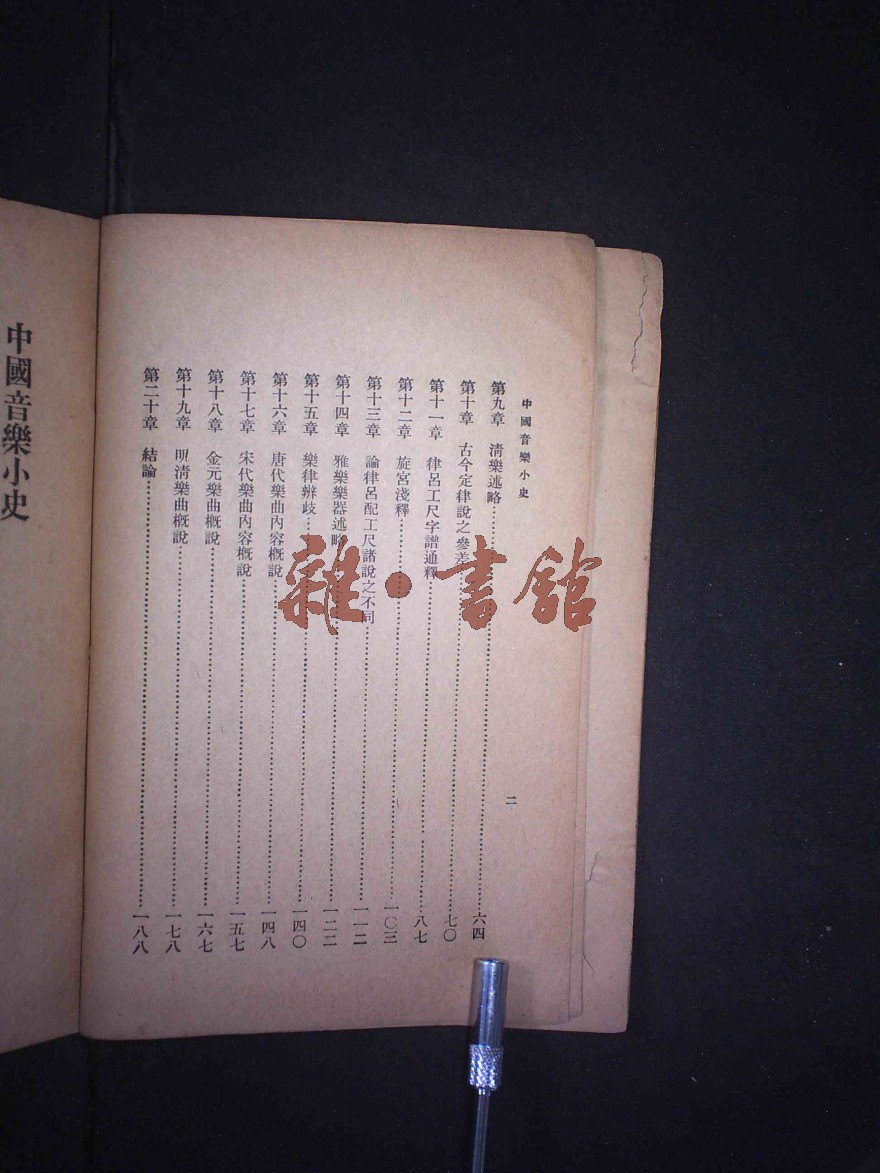 中國音樂小史
二
第九章　淸樂述略……六四
第十章　古今定律說之參差……七〇
第十一章　律呂工尺字譜通釋……八七
第十二章　旋宮淺釋……一〇三
第十三章　論律呂配工尺諸說之不同……一一二
第十四章　雅樂樂器述略……一二二
第十五章　樂律辨歧……一四〇
第十六章　唐代樂曲內容槪說……一四八
第十七章　宋代樂曲內容槪說……一五七
第十八章　金元樂曲槪說……一六七
第十九章　明淸樂曲槪說……一七八
第二十章　結論……一八八
中國音樂小史
雜·書館